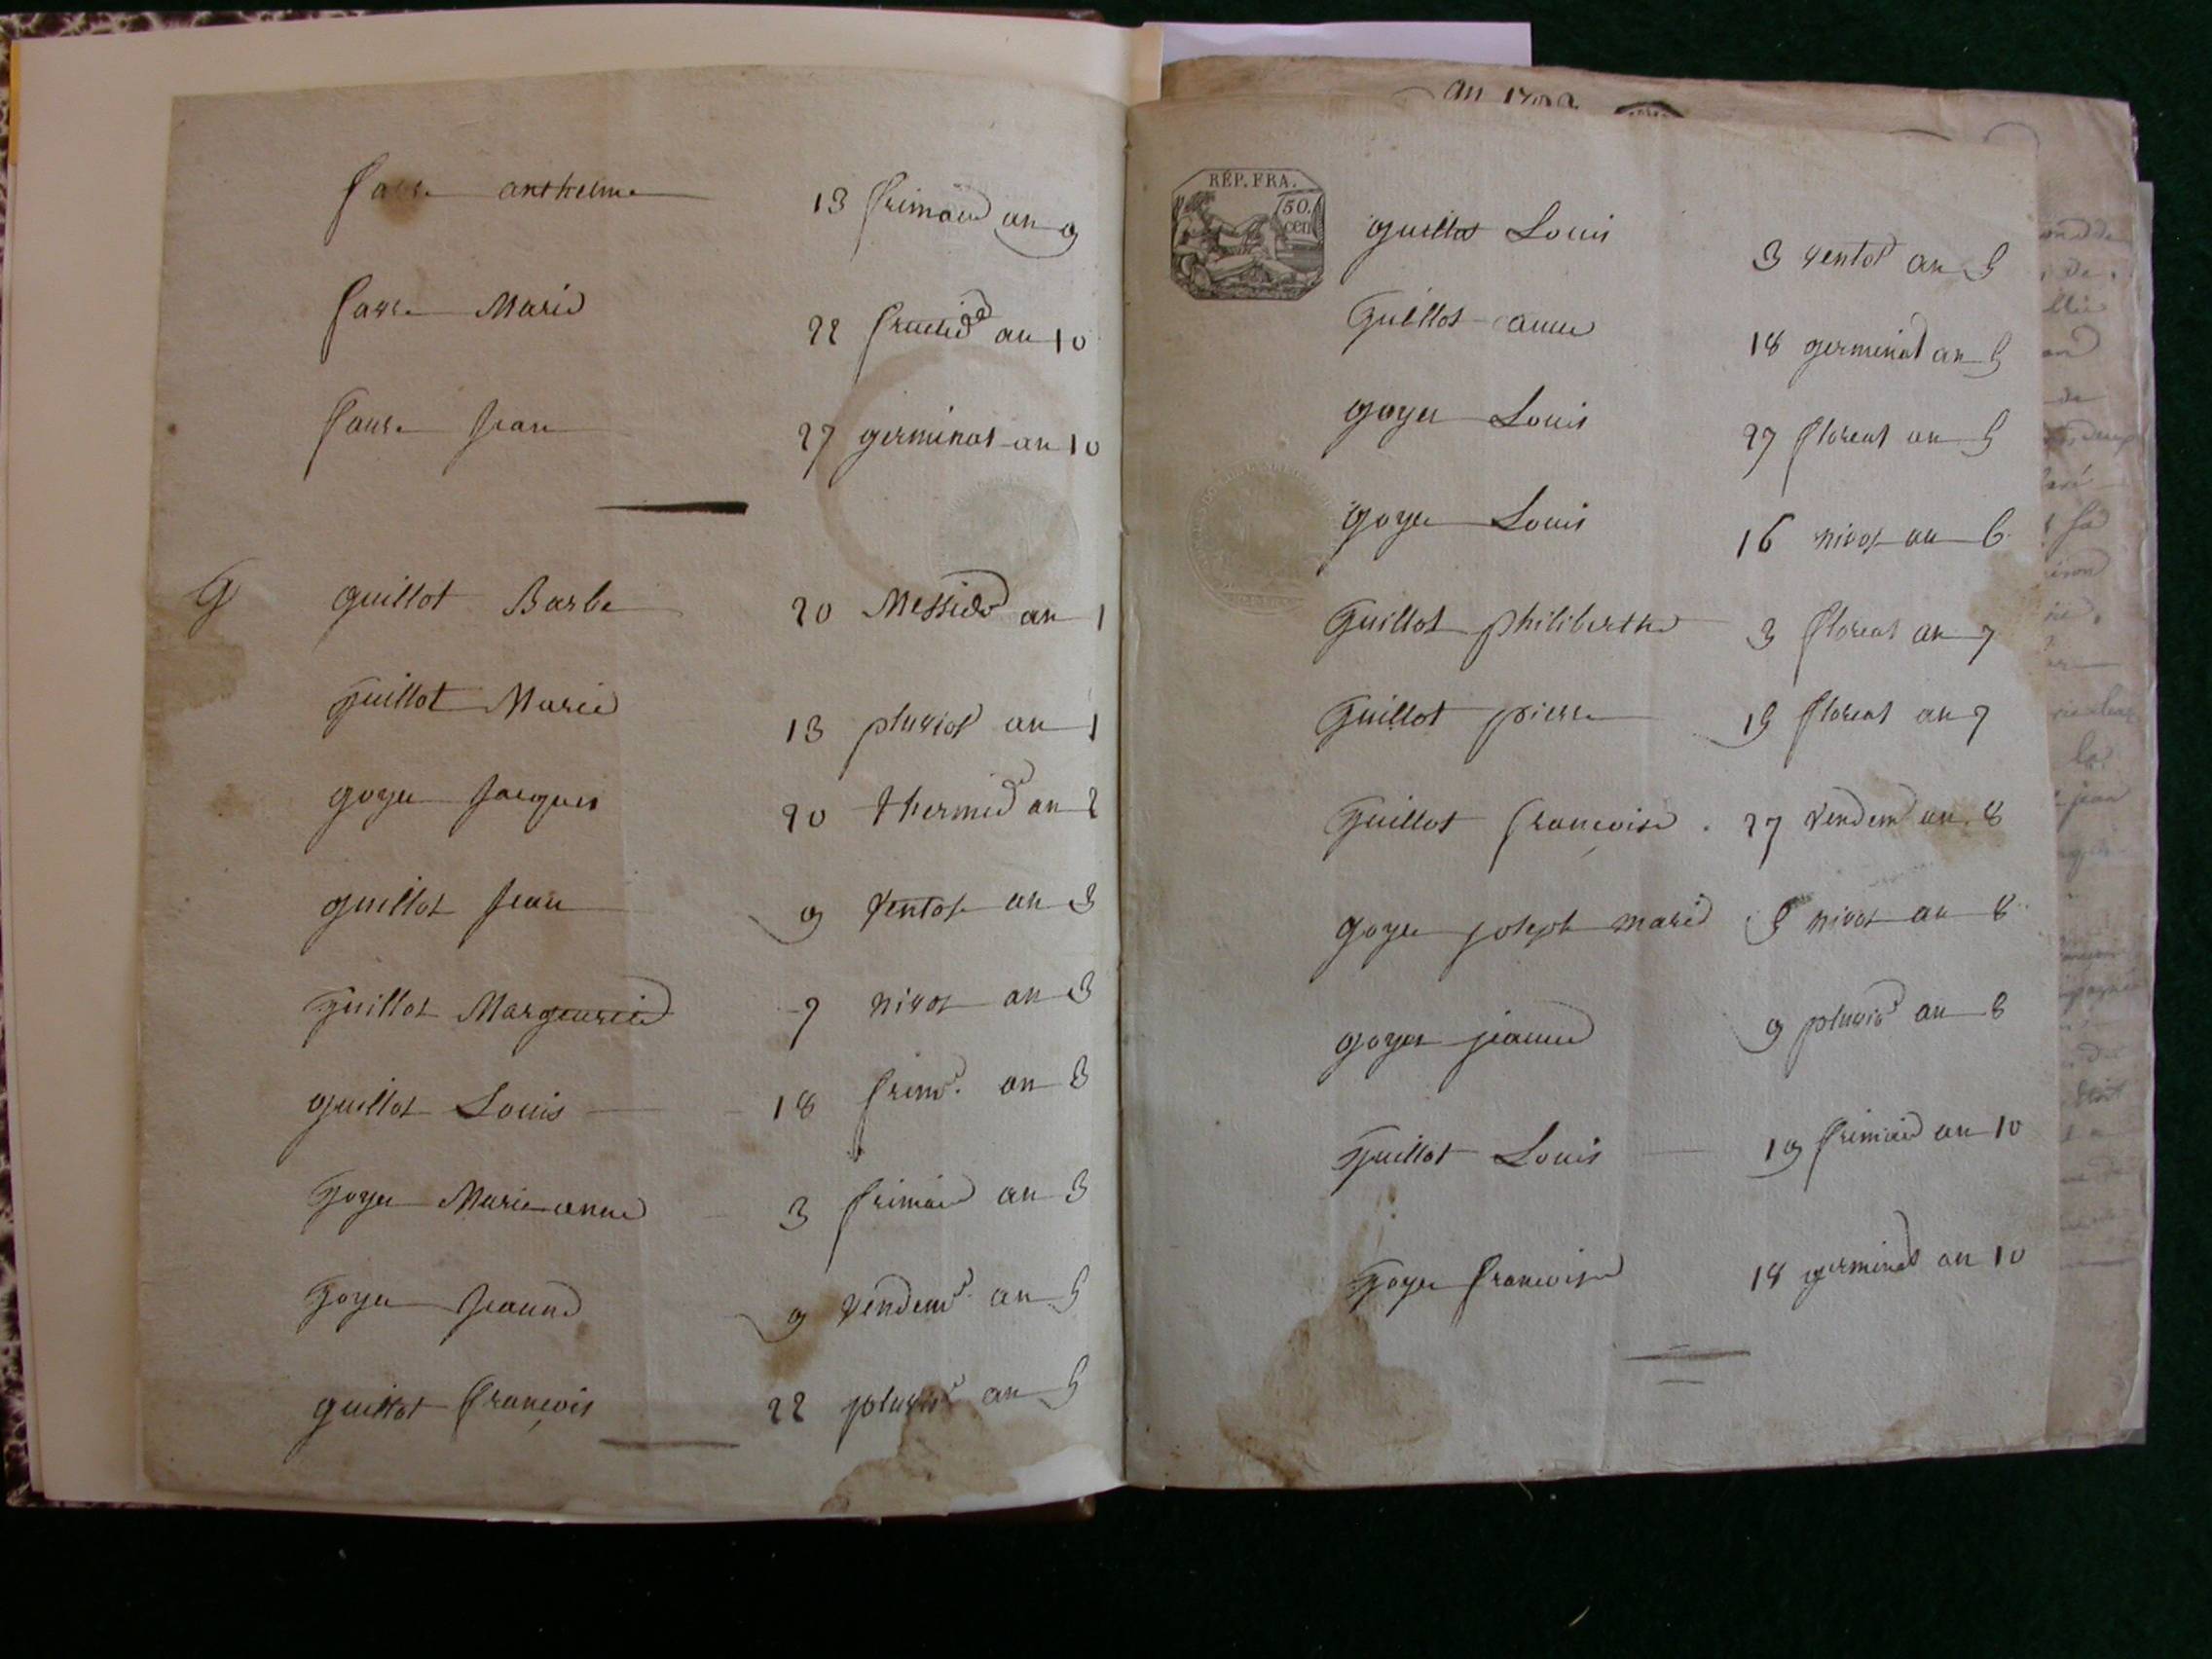 faure anthelme 13 frimaire an 9
faure Marie 22 fructid an 10
faure Jean 27 germinal an 10
G
guillot Barbe 20 Messido an 1
guillot Marie 13 pluvios an 1
goyer Jacques 20 thermid an 2
guillot Jean 9 ventos an 3
guillot Marguerite 7 nivos an 3
guillot Louis 18 frimr. an 3
goyer Marie anne 3 frimaire an 3
goyer Jeanne 9 vendemr an 5
guillot françois 22 pluvios an 5
an
RÉP. FRA.
50.
cen
guillot Louis 3 ventos an 5
guillot anne 18 germinal an 5
goyer Louis 27 floreal an 5
goyer Louis 16 nivos an 6
guillot philiberthe 3 floreal an 7
guillot pierre 19 floreal an 7
guillot françoise . 27 vendem an 8
goyer joseph marie 5 nivos an 8
goyer jeanne 9 pluvio an 8
guillot Louis 19 frimaire an 10
goyer francoise 18 germinal an 10